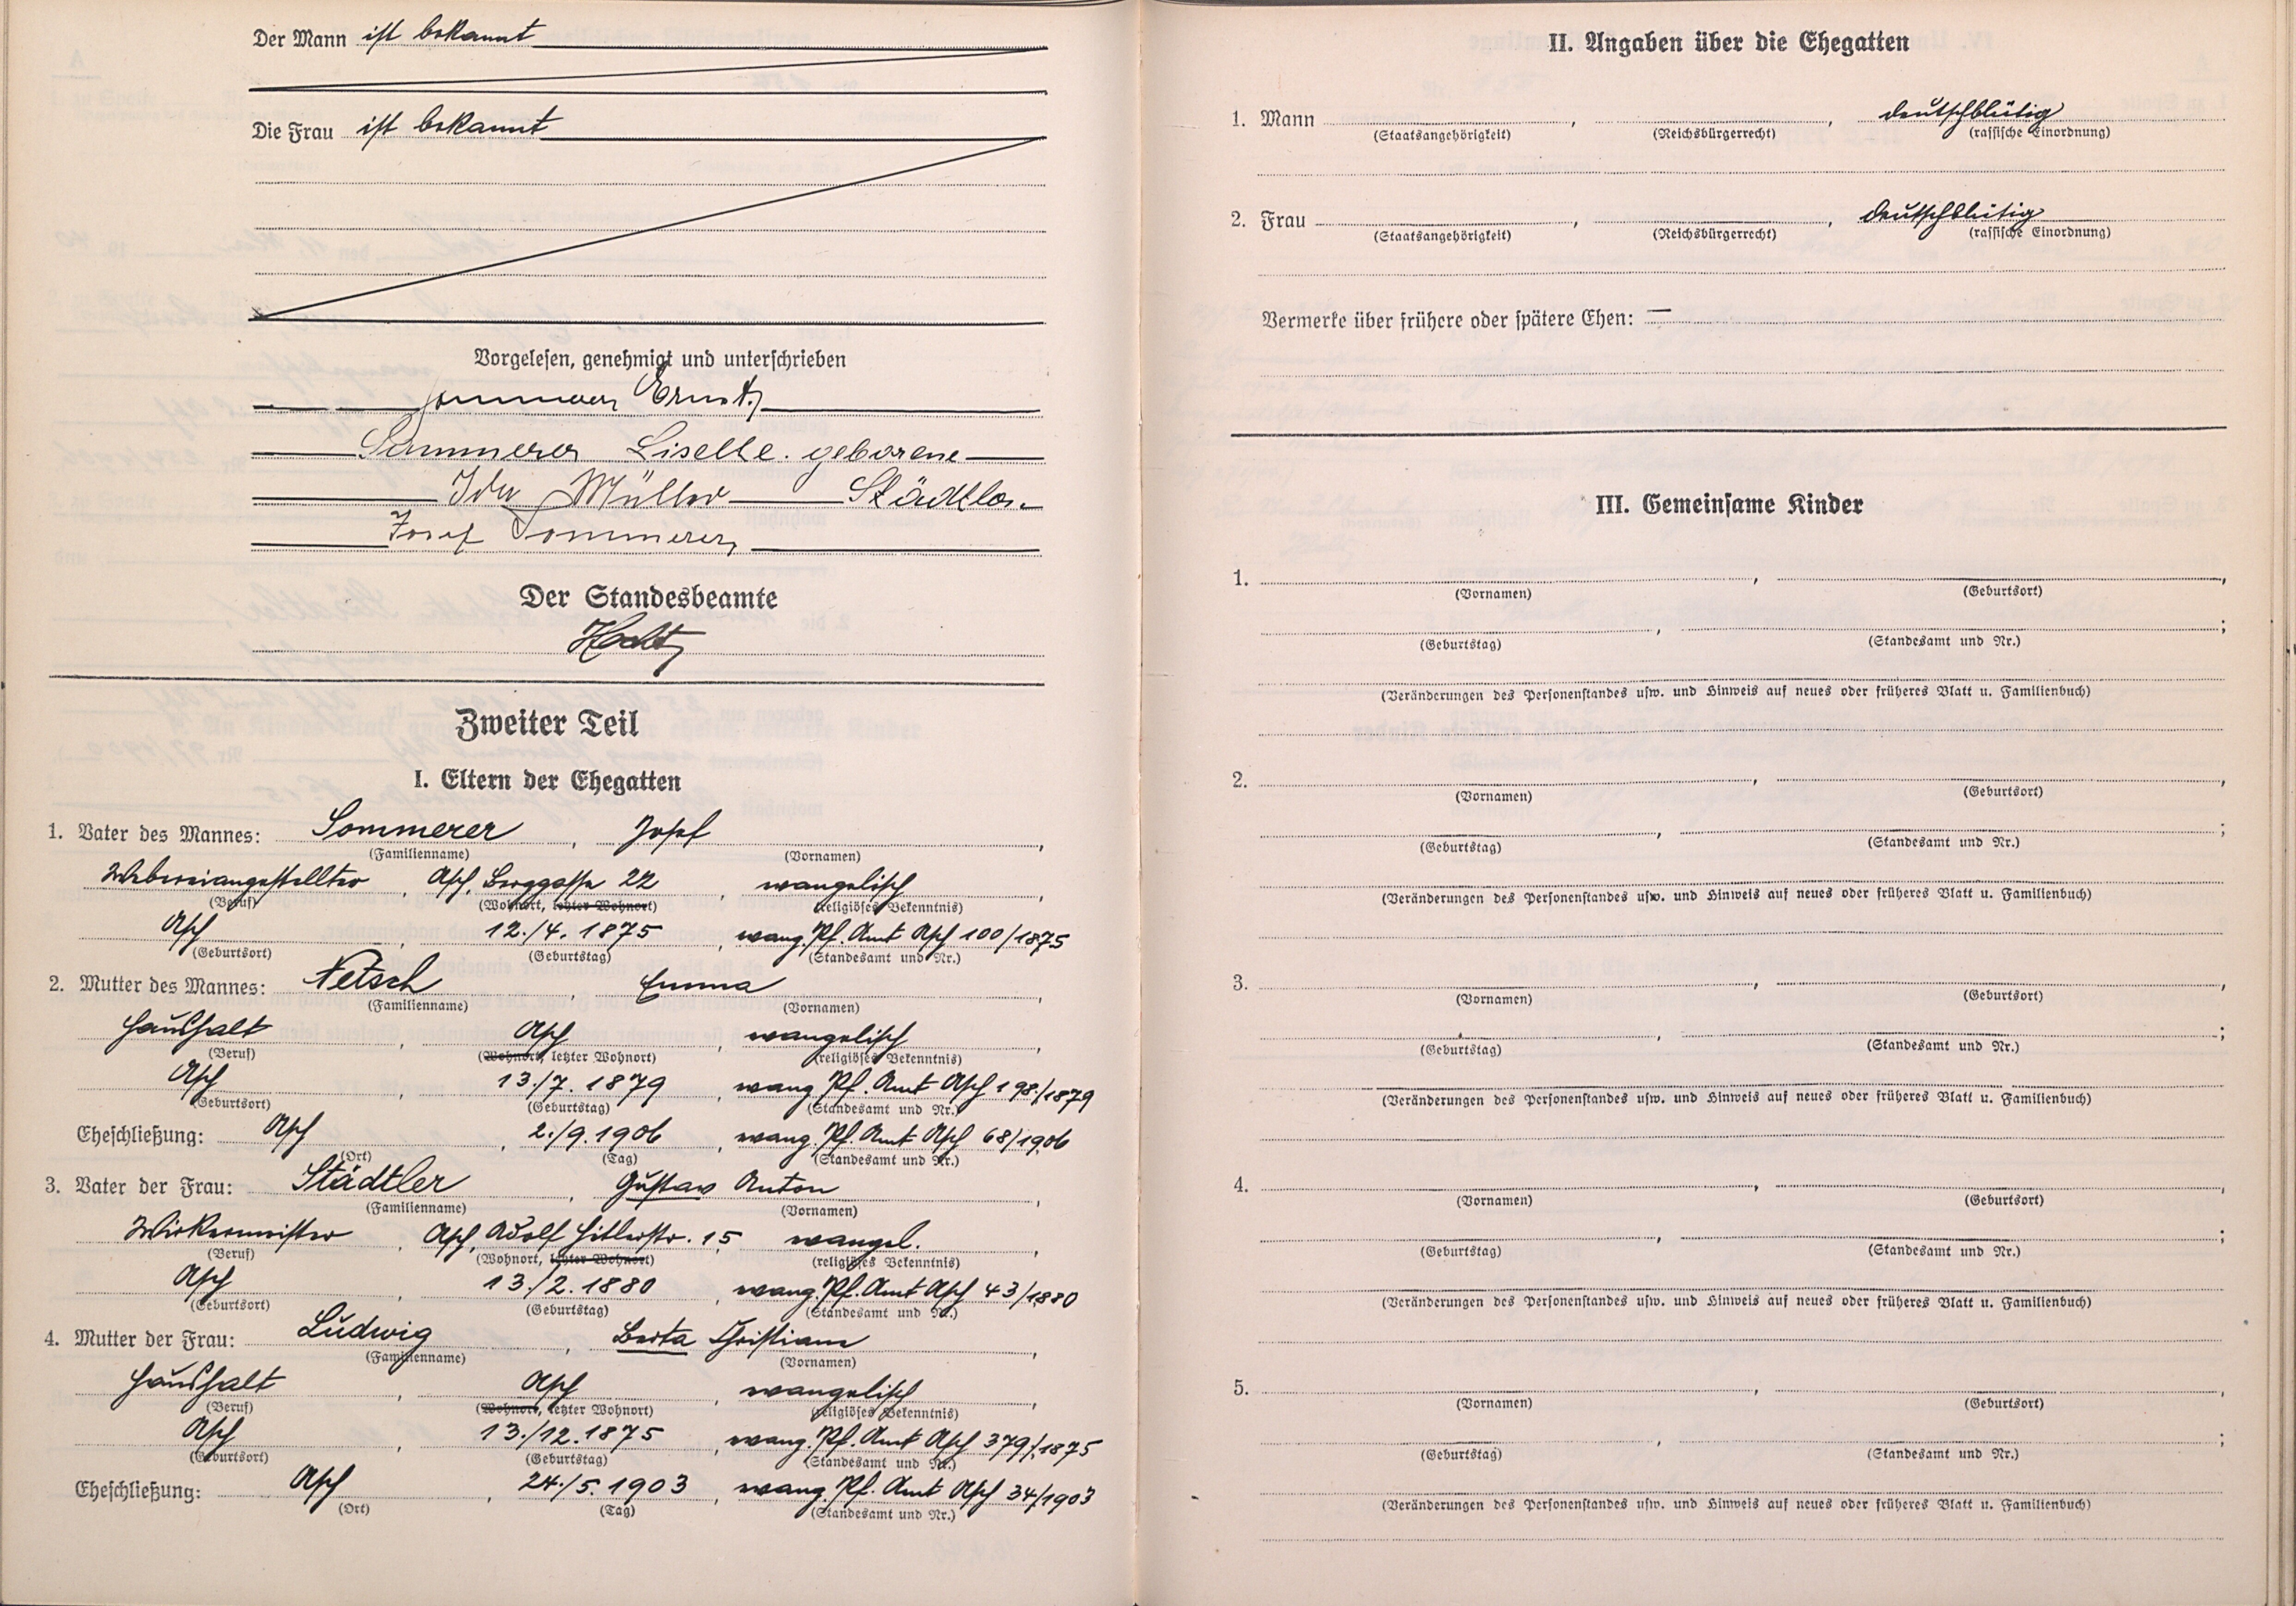 Der Mann ist bekannt
Die Frau ist bekannt
Vorgelesen, genehmigt und unterschrieben
Sommerer Ernst
Sommerer Liselte. geborene
Ida Müller Städtler
Josef Sommerer
Der Standesbeamte
Zweiter Teil
I. Eltern der Ehegatten
1. Vater des Mannes: Sommerer, Josef,
(Familienname) (Vornamen)
Webereiangestellter, Asch, Berggasse 22, evangelisch,
(Beruf) (Wohnort, letzter Wohnort) (religiöses Bekenntnis)
Asch, 12./4. 1875, evang. Pf. Amt Asch 100/1875
(Geburtsort) (Geburtstag) (Standesamt und Nr.)
2. Mutter des Mannes: Netsch, Emma,
(Familienname) (Vornamen)
Haushalt, Asch, evangelisch,
(Beruf) (Wohnort, letzter Wohnort) (religiöses Bekenntnis)
Asch, 13./7. 1879, evang Pf. Amt Asch 198/1879
(Geburtsort) (Geburtstag) (Standesamt und Nr.)
Eheschließung: Asch, 2./9. 1906, evang. Pf. Amt Asch 68/1906
(Ort) (Tag) (Standesamt und Nr.)
3. Vater der Frau: Städtler, Gustav Anton,
(Familienname) (Vornamen)
Wirkermeister, Asch, Adolf Hitlerstr. 15, evangel.,
(Beruf) (Wohnort, letzter Wohnort) (religiöses Bekenntnis)
Asch, 13./2. 1880, evang. Pf. Amt Asch 43/1880
(Geburtsort) (Geburtstag) (Standesamt und Nr.)
4. Mutter der Frau: Ludwig, Berta Christiane,
(Familienname) (Vornamen)
Haushalt, Asch, evangelisch,
(Beruf) (Wohnort, letzter Wohnort) (religiöses Bekenntnis)
Asch, 13./12. 1875, evang. Pf. Amt Asch 379/1875
(Geburtsort) (Geburtstag) (Standesamt und Nr.)
Eheschließung: Asch, 24./5. 1903, evang. Pf. Amt Asch 34/1903
(Ort) (Tag) (Standesamt und Nr.)
II. Angaben über die Ehegatten
1. Mann , , deutschblütig
(Staatsangehörigkeit) (Reichsbürgerrecht) (rassische Einordnung)
2. Frau , , deutschblütig
(Staatsangehörigkeit) (Reichsbürgerrecht) (rassische Einordnung)
Vermerke über frühere oder spätere Ehen: —
III. Gemeinsame Kinder
1. , ,
(Vornamen) (Geburtsort)
, ;
(Geburtstag) (Standesamt und Nr.)
(Veränderungen des Personenstandes usw. und Hinweis auf neues oder früheres Blatt u. Familienbuch)
2. , ,
(Vornamen) (Geburtsort)
, ;
(Geburtstag) (Standesamt und Nr.)
(Veränderungen des Personenstandes usw. und Hinweis auf neues oder früheres Blatt u. Familienbuch)
3. , ,
(Vornamen) (Geburtsort)
, ;
(Geburtstag) (Standesamt und Nr.)
(Veränderungen des Personenstandes usw. und Hinweis auf neues oder früheres Blatt u. Familienbuch)
4. , ,
(Vornamen) (Geburtsort)
, ;
(Geburtstag) (Standesamt und Nr.)
(Veränderungen des Personenstandes usw. und Hinweis auf neues oder früheres Blatt u. Familienbuch)
5. , ,
(Vornamen) (Geburtsort)
, ;
(Geburtstag) (Standesamt und Nr.)
(Veränderungen des Personenstandes usw. und Hinweis auf neues oder früheres Blatt u. Familienbuch)